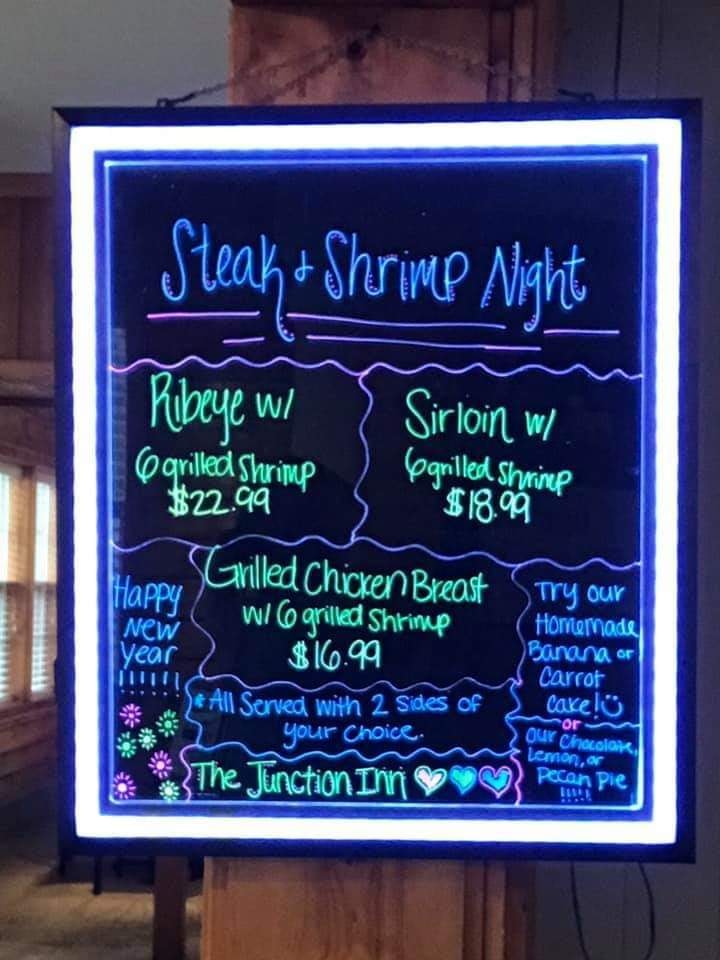 Steak & Shrimp Night
Ribeye w/
6 grilled Shrimp
$22.99
Sirloin w/
6 grilled shrimp
$18.99
Happy
New
year
!!!!!!
Grilled Chicken Breast
w/ 6 grilled shrimp
$16.99
Try our
Homemade
Banana or
Carrot
Cake!
or
our Chocolate,
Lemon, or
Pecan pie
!!!!!
* All Served with 2 sides of
your choice.
The Junction Inn